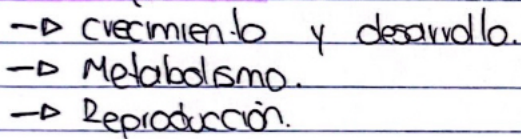 → crecimiento y desarrollo.
→ Metabolismo.
→ Reproducción.